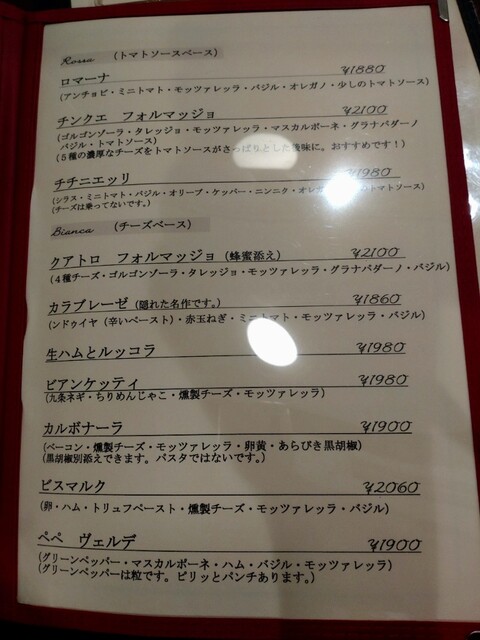 Rossa （トマトソースベース）
ロマーナ ¥1880
（アンチョビ・ミニトマト・モッツァレッラ・バジル・オレガノ・少しのトマトソース）
チンクエ　フォルマッジョ ¥2100
（ゴルゴンゾーラ・タレッジョ・モッツァレッラ・マスカルポーネ・グラナパダーノ
バジル・トマトソース）
（５種の濃厚なチーズをトマトソースがさっぱりとした後味に。おすすめです！）
チチニエッリ ¥1980
（シラス・ミニトマト・バジル・オリーブ・ケッパー・ニンニク・オレガ のトマトソース）
（チーズは乗ってないです。）
Bianca （チーズベース）
クアトロ　フォルマッジョ（蜂蜜添え） ¥2100
（４種チーズ・ゴルゴンゾーラ・タレッジョ・モッツァレッラ・グラナパダーノ・バジル）
カラブレーゼ（隠れた名作です。） ¥1860
（ンドゥイヤ（辛いペースト）・赤玉ねぎ・ミニトマト・モッツァレッラ・バジル）
生ハムとルッコラ ¥1980
ビアンケッティ ¥1980
（九条ネギ・ちりめんじゃこ・燻製チーズ・モッツァレッラ）
カルボナーラ ¥1900
（ベーコン・燻製チーズ・モッツァレッラ・卵黄・あらびき黒胡椒）
（黒胡椒別添えできます。パスタではないです。）
ビスマルク ¥2060
（卵・ハム・トリュフペースト・燻製チーズ・モッツァレッラ・バジル）
ペペ　ヴェルデ ¥1900
（グリーンペッパー・マスカルポーネ・ハム・バジル・モッツァレッラ）
（グリーンペッパーは粒です。ピリッとパンチあります。）